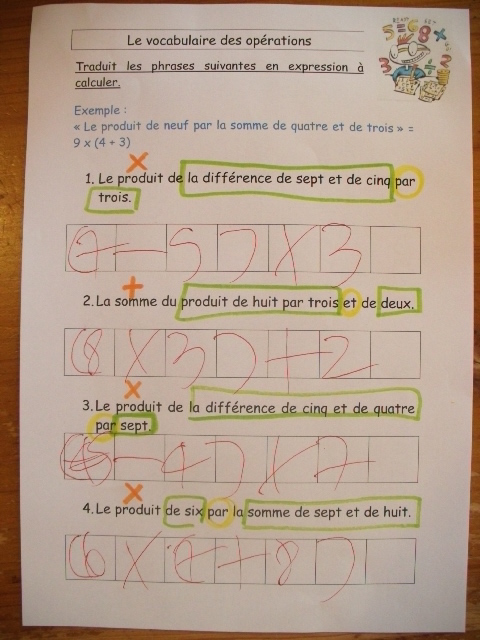 Le vocabulaire des opérations
Traduit les phrases suivantes en expression à
calculer.
Exemple :
« Le produit de neuf par la somme de quatre et de trois » =
9 x (4 + 3)
×
1. Le produit de la différence de sept et de cinq par
trois.
7 - 5 ) × 3
+
2. La somme du produit de huit par trois et de deux.
(8 × 3 ) + 2
×
3. Le produit de la différence de cinq et de quatre
par sept.
- 4 ) × 7
×
4. Le produit de six par la somme de sept et de huit.
6 × + 8 )